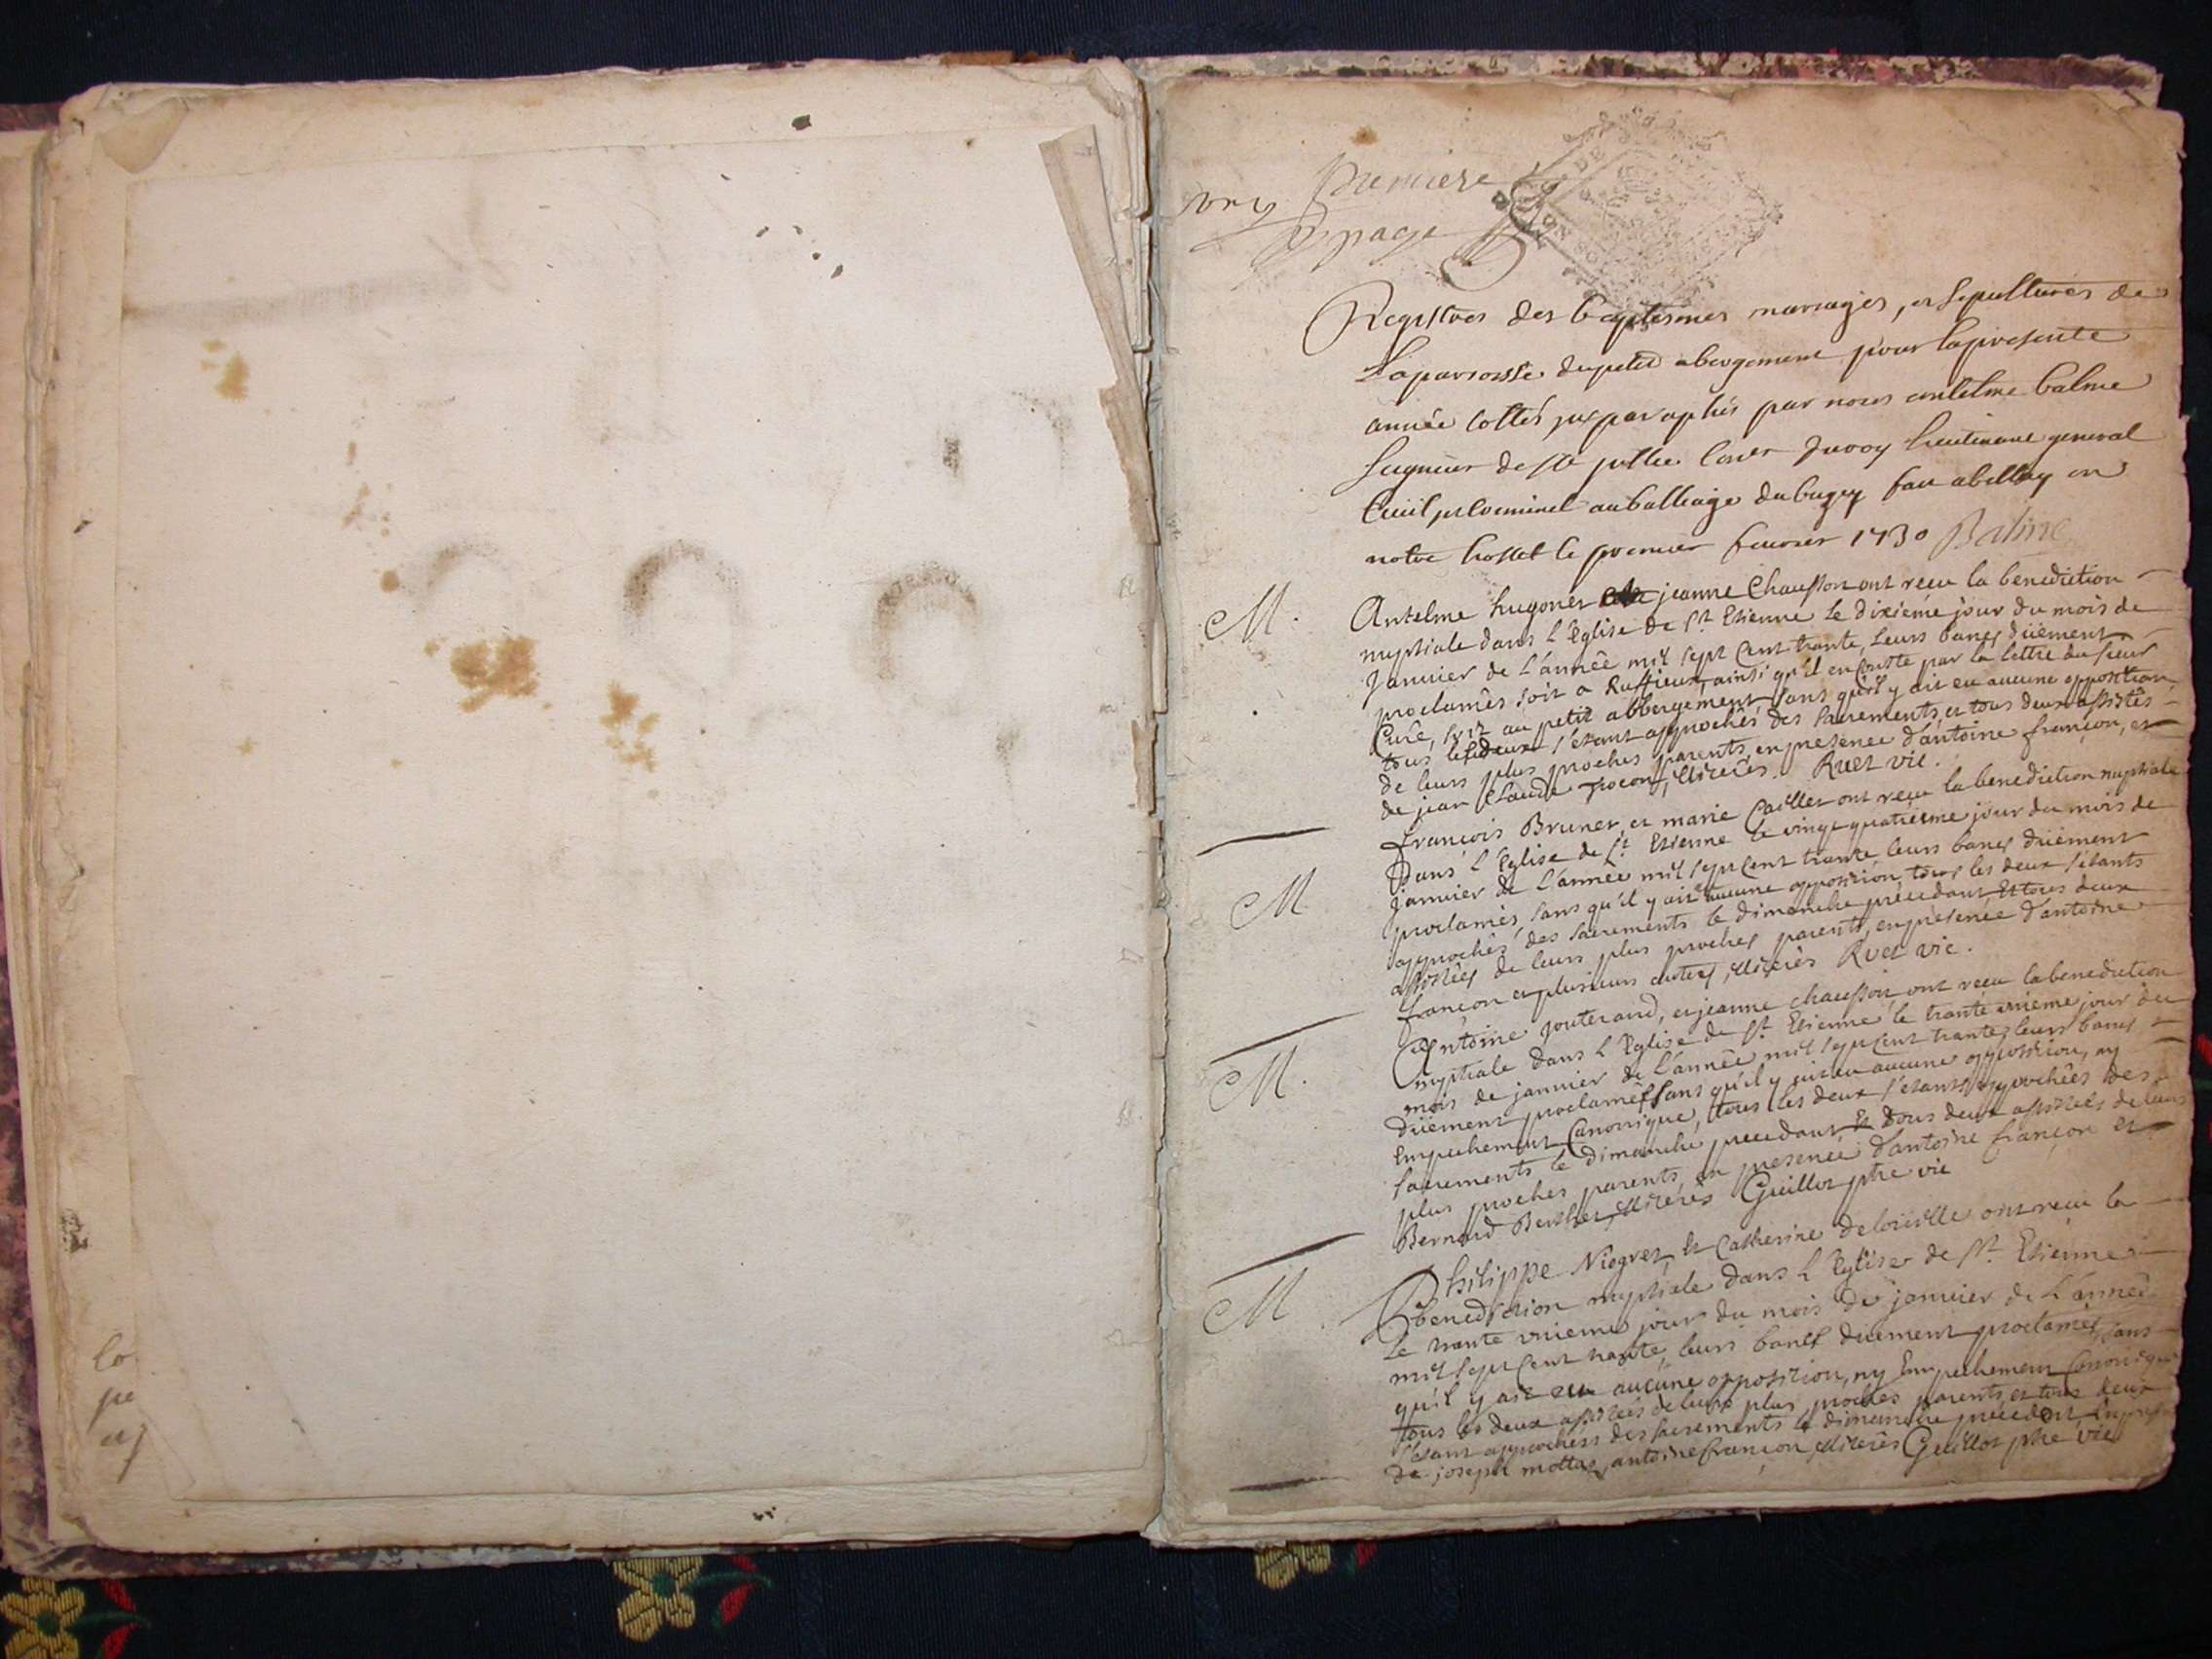 co
pe
premiere
page
DE
Registres des baptesmes mariages, et sepultures de
La parroisse du petit abergement pour la presente
année cottés et paraphés par nous antelme balme
seigneur de ste julie lieutenant general
Civil et Criminel au balliage du bugey fait a bellay en
notre hostel le premier fevrier 1730 Balme
M. Antelme hugonet et jeanne Chausson ont receu la benediction
nuptiale dans L'Eglise de St Etienne Le dixieme jour du mois de
Janvier de L'année mil sept Cent trante, Leurs bancs düement
proclamés soit a Ruffieux, ainsi qu'il en Conste par la lettre du sieur
Curé, soit au petit abbergement sans qu'il y ait eu aucune opposition
tous les deux s'etant approchés des sacrements, et tous deux assistés
de leurs plus proches parents, en presence d'antoine françon, et
de jean Claude illiterés. Ruet vic.
M françois Brunet, et marie Caillet ont receu la benediction nuptiale
Dans L'Eglise de St. Etienne le vingt quatrieme jour du mois de
janvier de L'année mil sept Cent trante, leurs bancs düement
proclamés, sans qu'il y ait aucune opposition, tous les deux s'etants
approchés des sacrements le dimanche precedant, Et tous deux
assistés de leurs plus proches parents, en presence d'antoine
françon et plusieurs autres, illiterés Ruet vic.
M. Antoine jouterand, et jeanne chausson ont receu la benediction
nuptiale dans L'Eglise de St Etienne le trante unieme jour du
mois de janvier de L'année mil sept Cent trante, leurs bancs
düement proclamés sans qu'il y ait eu aucune opposition, ny
Empechement Canonique, tous les deux s'etants approchées des
sacrements le dimanche precedant Et tous deux assistés de leurs
plus proches parents, en presence d'antoine françon et
Bernard Berthet, illiterés Guillot ptre vic
M Philippe Niogret, Et Catherine ont receu la
benediction nuptiale dans L'Eglise de St. Etienne
Le trante unieme jour du mois de janvier de L'année
mil sept Cent trante, leurs bancs düement proclamés, sans
qu'il y ait eu aucune opposition, ny Empechement Canonique
tous les deux assistés de leurs plus proches parents, et tous deux
s'etant approchées des sacrements le dimanche precedent, En pres
de joseph mottaz, antoine françon, illiterés Guillot ptre vic